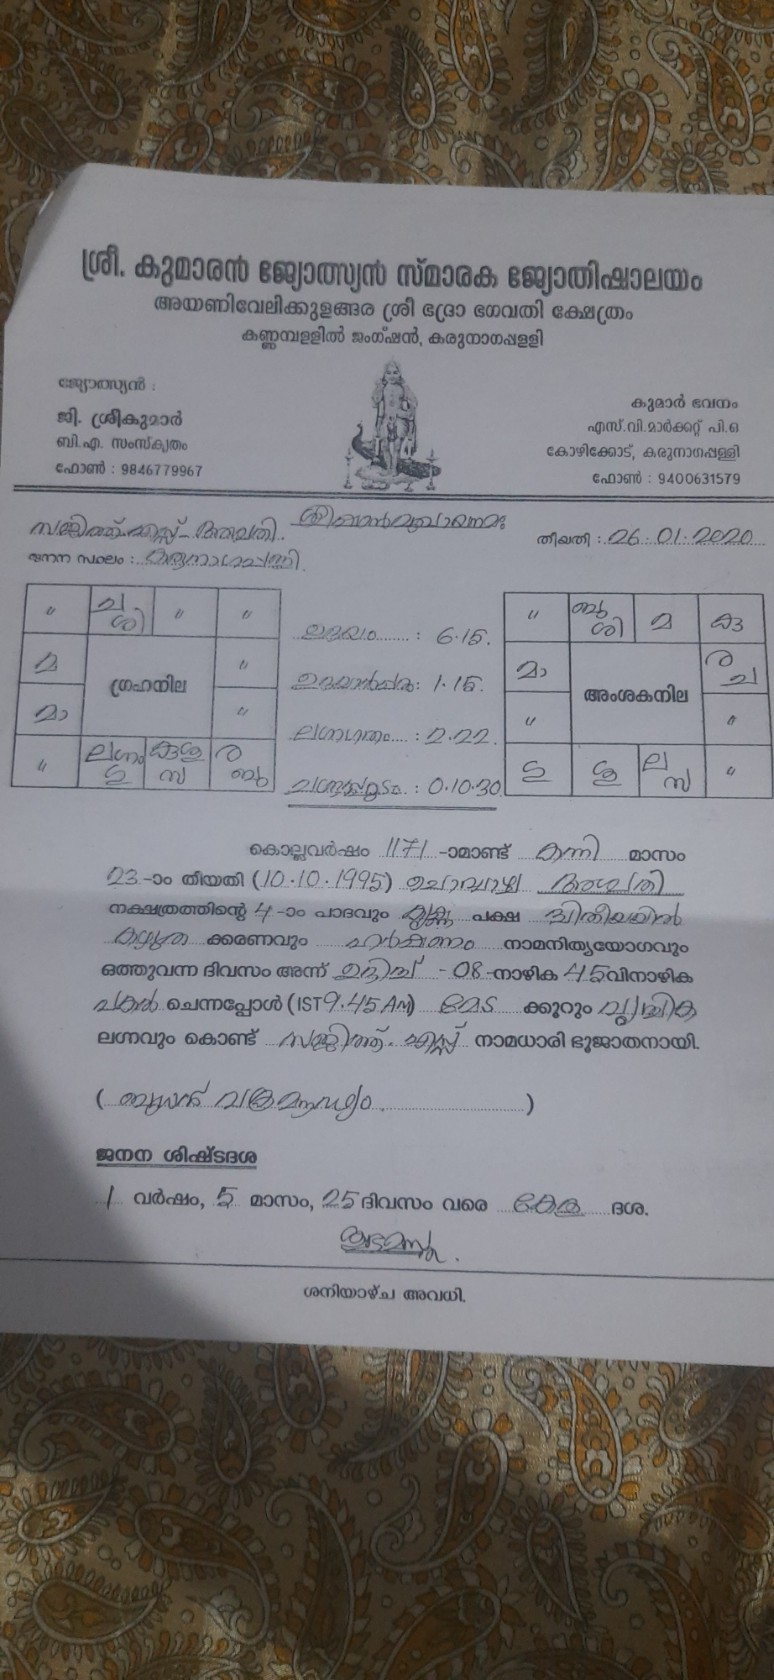 ശ്രീ. കുമാരൻ ജ്യോത്സ്യൻ സ്മാരക ജ്യോതിഷാലയം
അയണിവേലിക്കുളങ്ങര ശ്രീ ഭദ്രാ ഭഗവതി ക്ഷേത്രം
കണ്ണമ്പള്ളിൽ ജംഗ്ഷൻ, കരുനാഗപ്പള്ളി
ജ്യോത്സ്യൻ :
ജി. ശ്രീകുമാർ
ബി.എ. സംസ്കൃതം
ഫോൺ : 9846779967
കുമാർ ഭവനം
എസ്.വി.മാർക്കറ്റ് പി.ഒ
കോഴിക്കോട്, കരുനാഗപ്പള്ളി
ഫോൺ : 9400631579
തീയതി : 26.01.2020
ജനന സ്ഥലം : കരുനാഗപ്പള്ളി
" ച ശി " "
മ "
ഗ്രഹനില
മാ "
" ലഗ്നം ഗു കുശു സ ര ബു
ഉദയം : 6.15.
: 1.15.
: 2.22.
: 0.10.30.
" ബു ശി മ കു
മാ ര ച
അംശകനില
" "
ഗു ശു ല സ "
കൊല്ലവർഷം 1171 -ാമാണ്ട് കന്നി മാസം
23 -ാം തീയതി (10.10.1995) ചൊവ്വാഴ്ച അശ്വതി
നക്ഷത്രത്തിന്റെ 4 -ാം പാദവും കൃഷ്ണ പക്ഷ ദ്വിതീയയിൽ
ക്കരണവും ഹർഷണം നാമനിത്യയോഗവും
ഒത്തുവന്ന ദിവസം അന്ന് ഉദിച്ച് - 08 -നാഴിക 45 വിനാഴിക
പകൽ ചെന്നപ്പോൾ (IST 9.45 AM) മേട ക്കൂറും വൃശ്ചിക
ലഗ്നവും കൊണ്ട് സജിത്ത്. എസ്സ് നാമധാരി ഭൂജാതനായി.
ജനന ശിഷ്ടദശ
1 വർഷം, 5 മാസം, 25 ദിവസം വരെ കേതു ദശ.
ശനിയാഴ്ച അവധി.